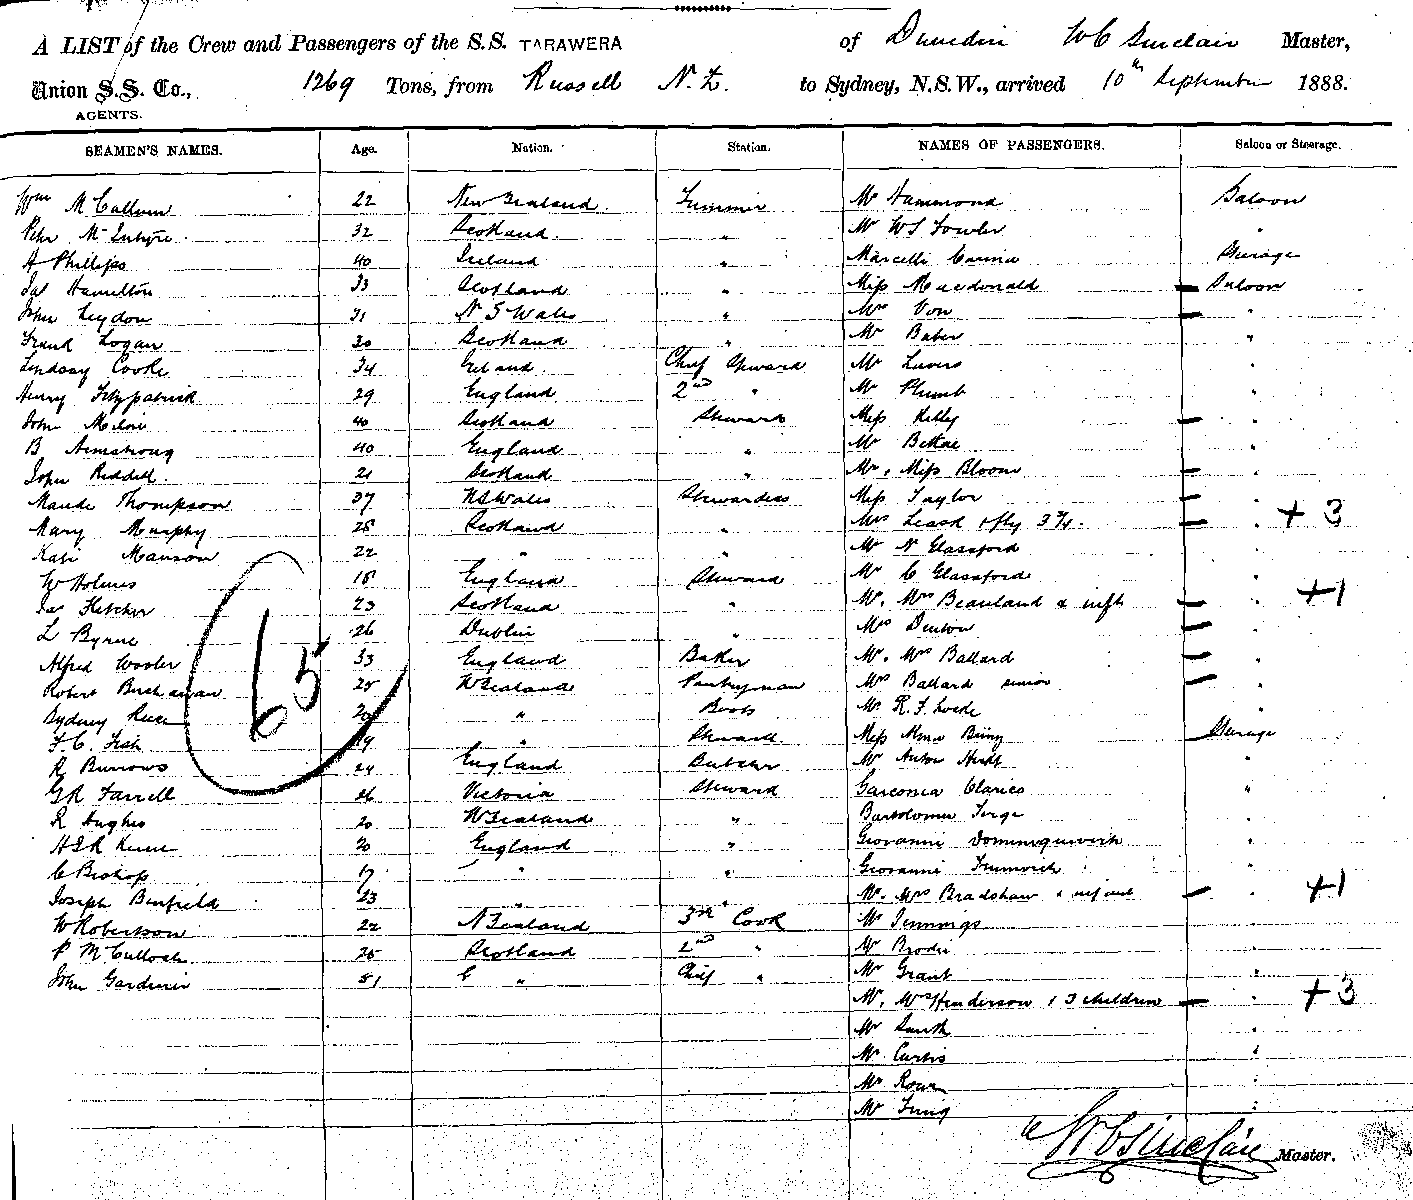 A LIST of the Crew and Passengers of the S.S. TARAWERA of Dunedin W C Sinclair Master,
Union S.S. Co., 1269 Tons, from Russell N.Z. to Sydney, N.S.W., arrived 10th September 1888.
AGENTS.
SEAMEN'S NAMES. Age. Nation. Station. NAMES OF PASSENGERS. Saloon or Steerage.
Wm McCallum 22 New Zealand Trimmer Mr Hammond Saloon
Peter McIntyre 32 Scotland " Mr WS Fowler "
A Phillips 40 Ireland " Marcelli Steerage
Jas Hamilton 33 Scotland " Miss Macdonald Saloon
John Leydon 31 N S Wales " Mrs Von "
Frank Logan 30 Scotland " Mr Baber "
Lindsay Cooke 34 Ireland Chief Steward Mr "
Henry Fitzpatrick 29 England 2nd " Mr Plumb "
John Milne 40 Scotland Steward Miss Kelly "
B Armstrong 40 England " Mr "
John Riddell 21 Scotland " Mr, Miss Bloom "
Maude Thompson 37 NSWales Stewardess Miss Taylor "
Mary Murphy 28 Scotland " Mrs Leask + 3
Kate Manson 22 " " Mr N Glassford
W Holmes 18 England Steward Mr C Glassford
Jas Fletcher 23 Scotland " Mr, Mrs Beauland & inft " +1
L Byrne 26 Dublin " Mrs Denton "
Alfred Wooler 33 England Baker Mr. Mrs Ballard "
Robert Buchanan 25 N Zealand Pantryman Mrs Ballard senior "
65
Sydney 20 " Boots Mr R.F. "
F. C. Fish 19 " Steward Miss Alma Steerage
R Burrows 24 England Butcher Mr Anton "
G R Farrell 26 Victoria Steward Garconia Clarice "
R Hughes 20 N Zealand " Bartolomeo
H E R 20 England " Giovanni "
C Bishop 17 " " Giovanni "
Joseph Binfield 23 " " Mr. Mrs Bradshaw & infant " +1
W Robertson 22 N Zealand 3rd Cook Mr Jennings
P McCulloch 25 Scotland 2nd " Mr Brodie "
John Gardiner 51 " Chief " Mr Grant "
Mr. Mrs Henderson & 3 children " +3
Mr Smith "
Mr Curtis "
Mr "
Mr "
W C Sinclair Master.